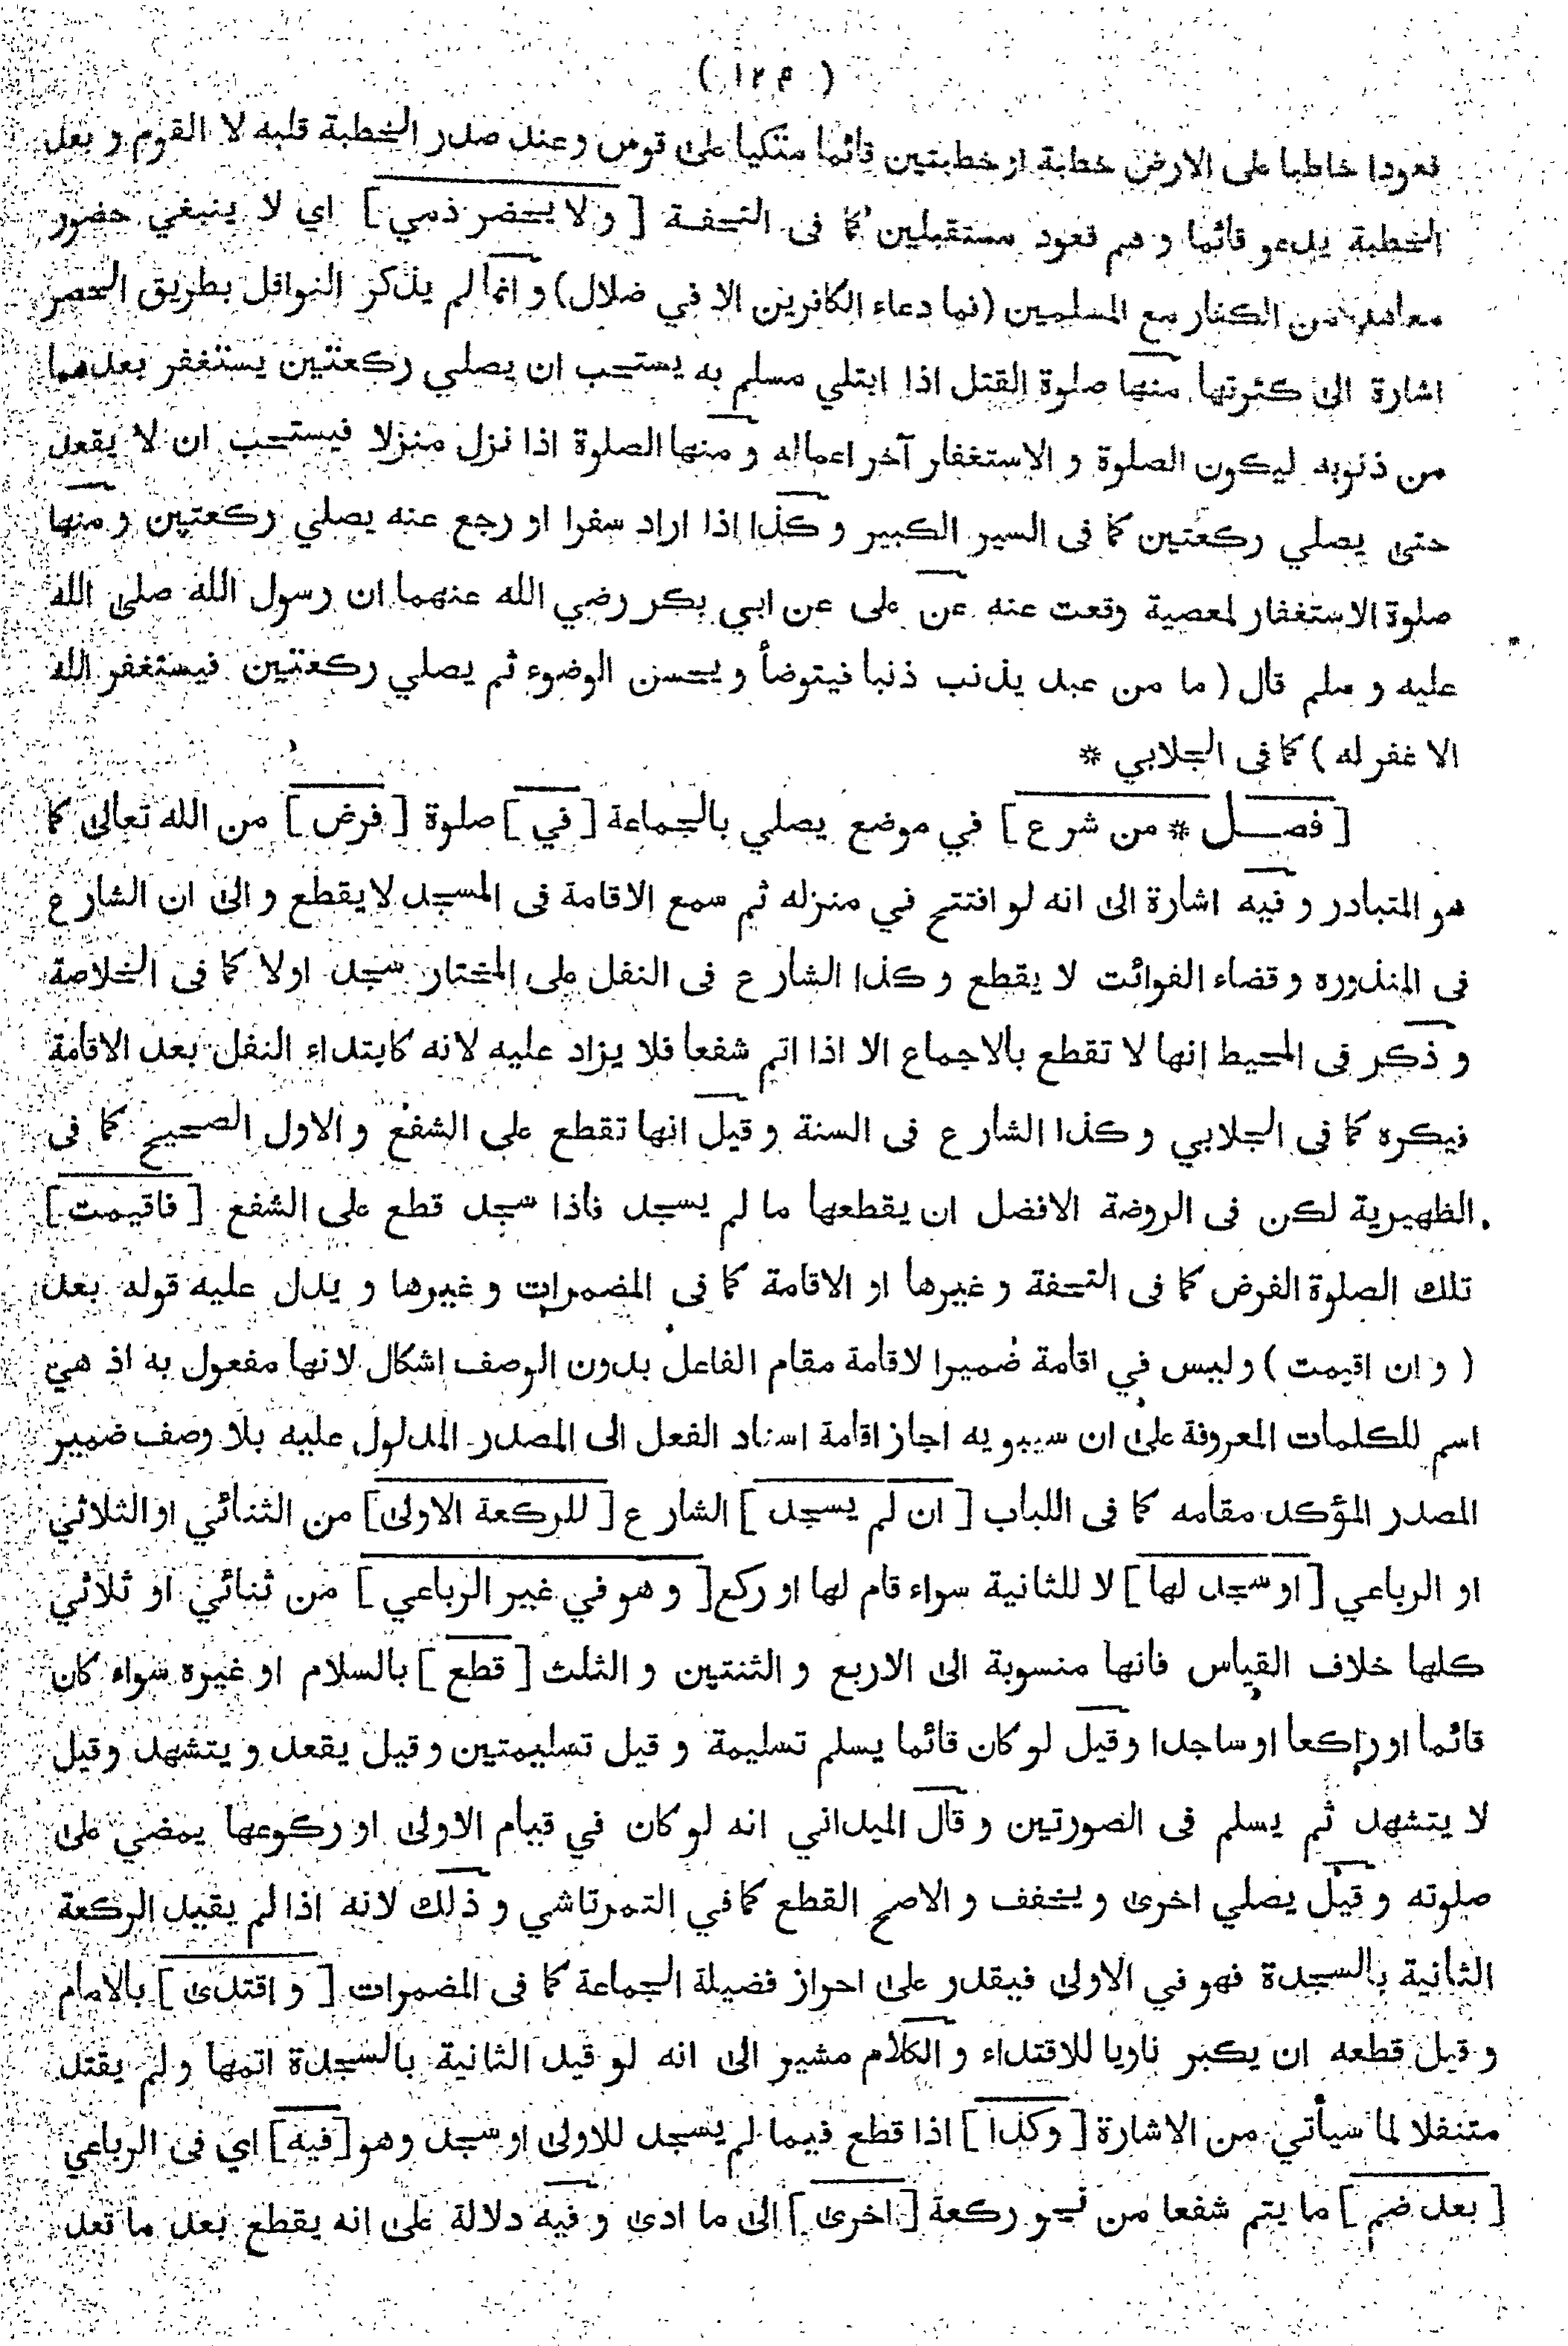 ( ١٢٩ )
قعودا خاطبا على الارض خطبة او خطبتين قائما متكيا على قوس وعند صدر الخطبة قلبه لا القوم و بعد
الخطبة يدعو قائما و هم قعود مستقبلين كما فى التحفة [ و لا يحضر ذمي ] اي لا ينبغي حضور
معاهد من الكفار مع المسلمين (فما دعاء الكافرين الا في ضلال) و انما لم يذكر النوافل بطريق الحصر
اشارة الى كثرتها منها صلوة القتل اذا ابتلي مسلم به يستحب ان يصلي ركعتين يستغفر بعدهما
من ذنوبه ليكون الصلوة و الاستغفار آخر اعماله و منها الصلوة اذا نزل منزلا فيستحب ان لا يقعد
حتى يصلي ركعتين كما فى السير الكبير و كذا اذا اراد سفرا او رجع عنه يصلي ركعتين و منها
صلوة الاستغفار لمعصية وقعت عنه عن على عن ابي بكر رضي الله عنهما ان رسول الله صلى الله
عليه و سلم قال ( ما من عبد يذنب ذنبا فيتوضأ و يحسن الوضوء ثم يصلي ركعتين فيستغفر الله
الا غفر له ) كما فى الجلابي *
[ فصــل * من شرع ] في موضع يصلي بالجماعة [ في ] صلوة [ فرض ] من الله تعالى كما
هو المتبادر و فيه اشارة الى انه لو افتتح في منزله ثم سمع الاقامة فى المسجد لا يقطع و الى ان الشارع
فى المنذوره و قضاء الفوائت لا يقطع و كذا الشارع فى النفل على المختار سجد اولا كما فى الخلاصة
و ذكر فى المحيط انها لا تقطع بالاجماع الا اذا اتم شفعا فلا يزاد عليه لانه كابتداء النفل بعد الاقامة
فيكره كما فى الجلابي و كذا الشارع فى السنة و قيل انها تقطع على الشفع و الاول الصحيح كما فى
الظهيرية لكن فى الروضة الافضل ان يقطعها ما لم يسجد فاذا سجد قطع على الشفع [ فاقيمت ]
تلك الصلوة الفرض كما فى التحفة و غيرها او الاقامة كما فى المضمرات و غيرها و يدل عليه قوله بعد
( و ان اقيمت ) و ليس في اقامة ضميرا لاقامة مقام الفاعل بدون الوصف اشكال لانها مفعول به اذ هي
اسم للكلمات المعروفة على ان سيبويه اجاز اقامة اسناد الفعل الى المصدر المدلول عليه بلا وصف ضمير
المصدر المؤكد مقامه كما فى اللباب [ ان لم يسجد ] الشارع [ للركعة الاولى ] من الثنائي او الثلاثي
او الرباعي [ او سجد لها ] لا للثانية سواء قام لها او ركع [ و هو في غير الرباعي ] من ثنائي او ثلاثي
كلها خلاف القياس فانها منسوبة الى الاربع و الثنتين و الثلث [ قطع ] بالسلام او غيره سواء كان
قائما او راكعا او ساجدا و قيل لو كان قائما يسلم تسليمة و قيل تسليمتين و قيل يقعد و يتشهد و قيل
لا يتشهد ثم يسلم فى الصورتين و قال الميداني انه لو كان في قيام الاولى او ركوعها يمضي على
صلوته و قيل يصلي اخرى و يخفف و الاصح القطع كما في التمرتاشي و ذلك لانه اذا لم يقيد الركعة
الثانية بالسجدة فهو في الاولى فيقدر على احراز فضيلة الجماعة كما فى المضمرات [ و اقتدى ] بالامام
و قيل قطعه ان يكبر ناويا للاقتداء و الكلام مشير الى انه لو قيد الثانية بالسجدة اتمها و لم يقتد
متنفلا لما سيأتي من الاشارة [ و كذا ] اذا قطع فيما لم يسجد للاولى او سجد و هو [ فيه ] اي فى الرباعي
[ بعد ضم ] ما يتم شفعا من نحو ركعة [ اخرى ] الى ما ادى و فيه دلالة على انه يقطع بعد ما تعد